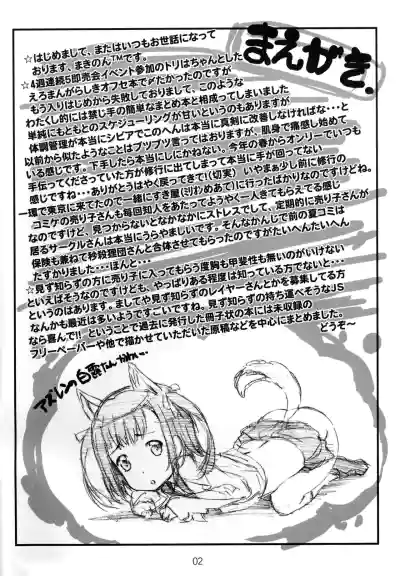 まえがき。
☆はじめまして、またはいつもお世話になって
おります、まきのん™です。
☆4週連続5即売会イベント参加のトリはちゃんとした
えろまんがらしきオフセ本で〆だかったのですが
もう入りはじめから失敗しておりまして、このような
わたくし的には禁じ手の簡単なまとめ本と相成ってしまいました
単純にもともとのスケジューリングが甘いというのもありますが
体調管理が本当にシビアでこのへんは本当に真剣に改善しなければな・・・と
以前から似たようなことはブツブツ言ってはおりますが、肌身で痛感し始めて
いる感じです。下手したら本当にしにかねない。今年の春からオンリーでいつも
手伝ってくださっていた方が修行に出てしまって本当に手が回ってない
感じですね・・・ありがとうはやく戻ってきて！(切実) いやまぁ少し前に修行の
一環で東京に来てたので一緒にすき屋
に行ったばかりなのですけどね。
コミケの売り子さんも毎回知人をあたってようやく一人きてもらえてる感じ
なのですけど、見つからないとなかなかにストレスでして、定期的に売り子さんが
居るサークルさんは本当にうらやましいです。そんなかんじで前の夏コミは
保険も兼ねて秒殺狸団さんと合体させてもらったのですがたいへんたいへん
たすかりました・・・ほんと・・・。
☆見ず知らずの方に売り子に入ってもらう度胸も甲斐性も無いのがいけない
といえばそうなのですけども、やっぱりある程度は知っている方でないと・・・
というのはあります。ましてや見ず知らずのレイヤーさんとかを募集してる方
なんかも最近は多いようですごいですね。見ず知らずの持ち運べそうなJS
なら喜んで!! ということで過去に発行した冊子状の本には未収録の
フリーペーパーや他で描かせていただいた原稿などを中心にまとめました。
どうぞ〜
アズレンの
02